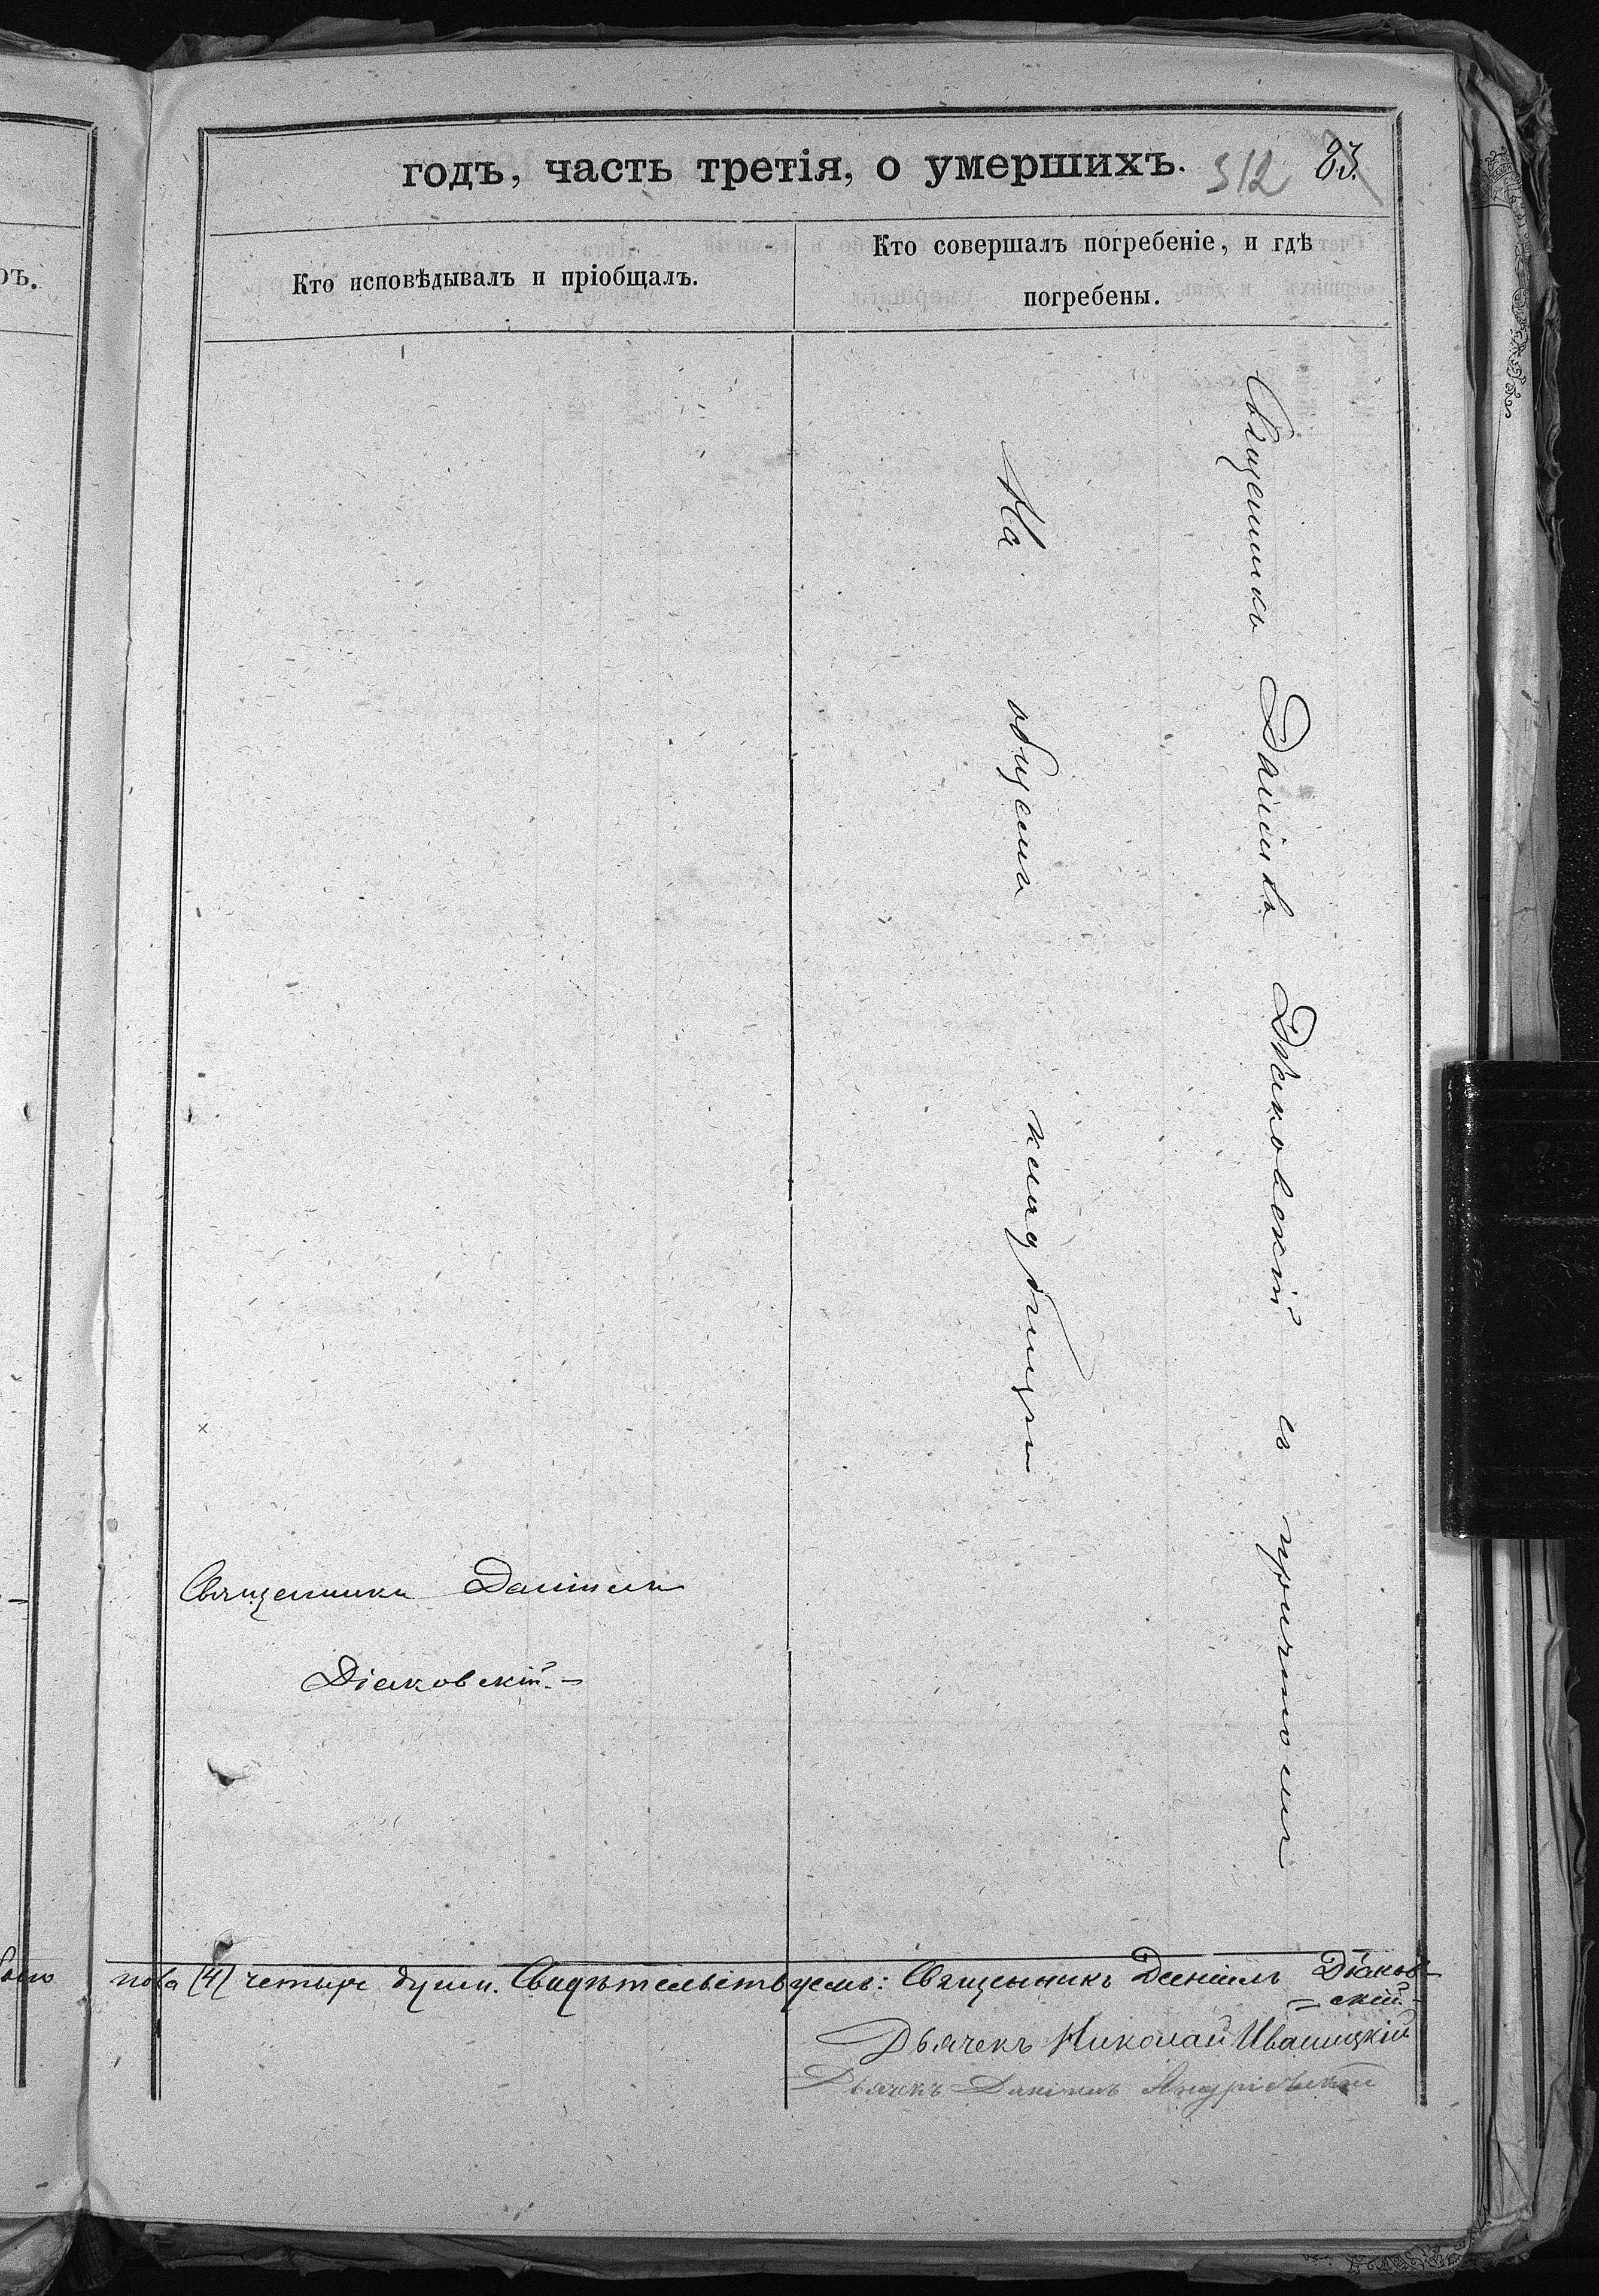 годъ, часть третія, о умершихъ. 312 83.
ръ.
Кто исповѣдывалъ и пріобщалъ.
Кто совершалъ погребеніе, и гдѣ
погребены.
Священникъ Даніилъ Діаковскій съ причтомъ
На общемъ кладбищѣ
Священникъ Даніилъ
Діаковскій.-
пола (4) четыре души. Свидѣтельствуемъ: Священникъ Даніилъ Діаков-
=скій.-
Дьячекъ Николай Ивашицкій
Дьячекъ Даніилъ